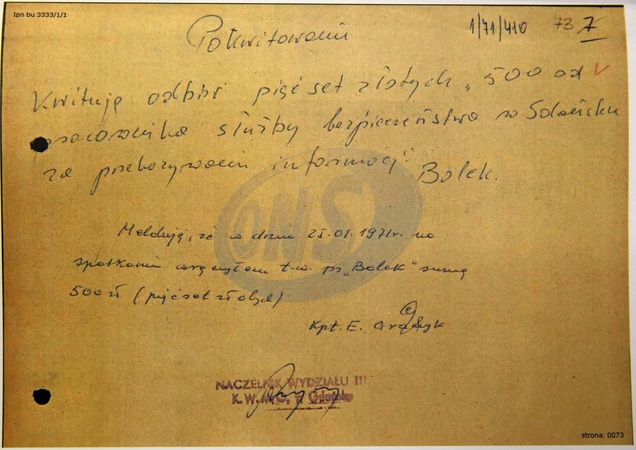 Ipn bu 3333/1/1
1/71/410 73 7
Pokwitowanie
Kwituję odbiór pięćset złotych "500 od
pracownika służby bezpieczeństwa w Gdańsku
za przekazywanie informacji Bolek.
Melduję, że w dniu 25.01.1971r. na
spotkaniu wręczyłem t.w. ps „Bolek" sumę
500 zł (pięćset złotych)
Kpt. E.
NACZELNIK WYDZIAŁU III
K.W.M.O. w Gdańsku
OMS
strona: 0073